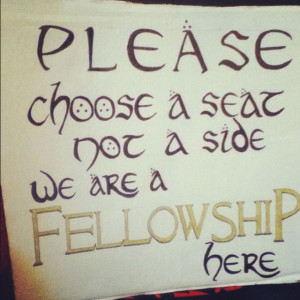 PLEASE
choose a seat
not a side
we are a
FELLOWSHIP
here